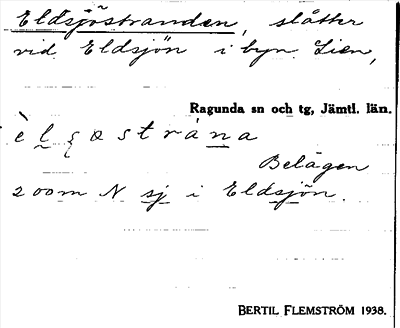 Eldsjöstranden, slåtter
vid Eldsjön i byn Lien,
Ragunda sn och tg, Jämtl. län.
è l ʃ ø s t r á n a
Belägen
200 m N sj i Eldsjön.
BERTIL FLEMSTRÖM 1938.